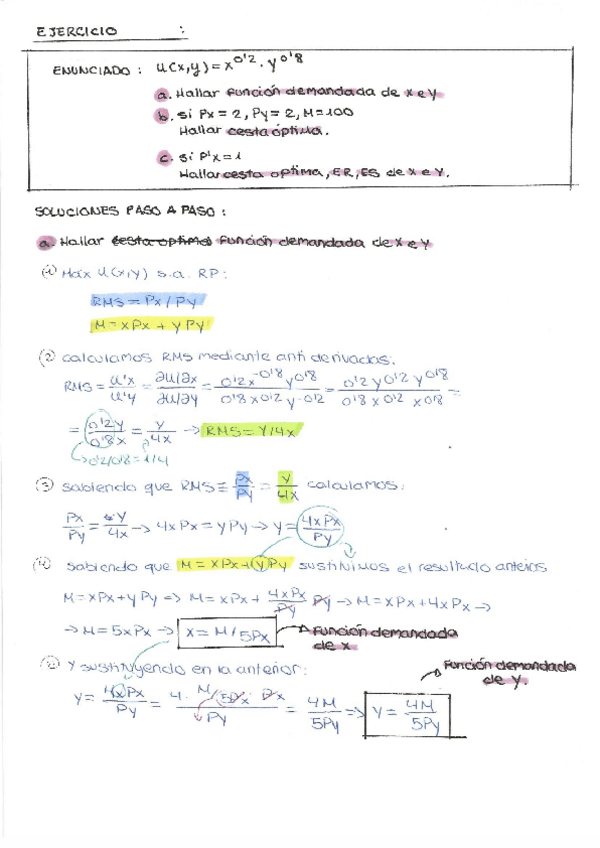 EJERCICIO :
ENUNCIADO : U(x,y) = x^0'2 · y^0'8
a. Hallar función demandada de x e y
b. si Px = 2, Py = 2, M = 100
Hallar cesta óptima.
c. si P'x = 1
Hallar cesta optima, ER, ES de x e y.
SOLUCIONES PASO A PASO :
a. Hallar (cesta optima) función demandada de x e y
(1) Máx U(x,y) s.a. RP:
RMS = Px / Py
M = xPx + yPy
(2) calculamos RMS mediante anti derivadas:
RMS = U'x / U'y = ∂U/∂x / ∂U/∂y = 0'2 x^-0'8 y^0'8 / 0'8 x^0'2 y^-0'2 = 0'2 y^0'2 y^0'8 / 0'8 x^0'2 x^0'8 =
= 0'2y / 0'8x = y / 4x → RMS = Y/4x
↳ 0'2/0'8 = 1/4
(3) sabiendo que RMS = Px / Py = y / 4x calculamos:
Px / Py = y / 4x → 4xPx = yPy → y = 4xPx / Py
(4) sabiendo que M = xPx + yPy sustituimos el resultado anterior
M = xPx + yPy => M = xPx + 4xPx / Py Py → M = xPx + 4xPx →
→ M = 5xPx → x = M / 5Px → Función demandada
de x
Y sustituyendo en la anterior:
Función demandada
de y.
y = 4xPx / Py = 4 · M/5Px · Px / Py = 4M / 5Py => y = 4M / 5Py